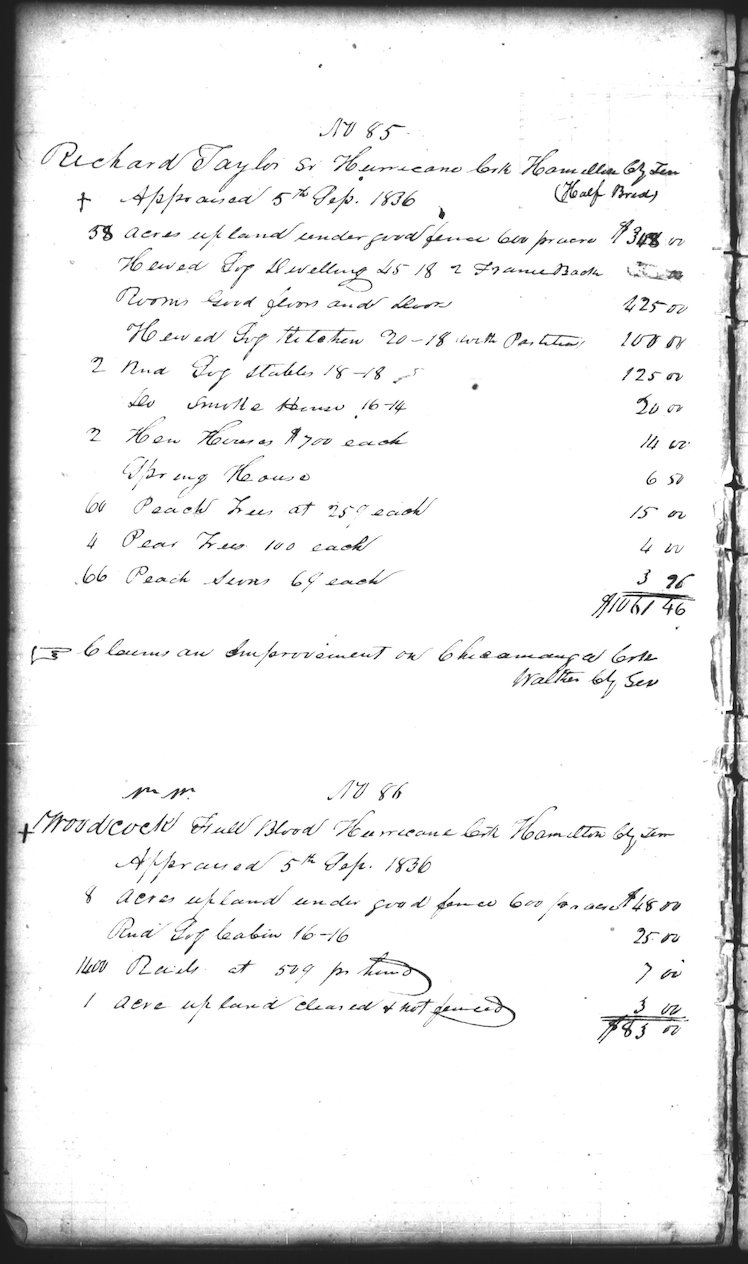 No 85
Richard Taylor Sr Hurricane Crk Hamilton Cty Ten
(Half Bred)
+ Appraised 5th Sep. 1836
58 acres upland under good fence 600 pr acre $348 00
Hewed Log Dwelling 45 18 2 Frame Back
Rooms Good floors and Doors 425 00
Hewed Log Kitchen 20-18 with Partition 100 00
2 Rnd Log Stables 18-18 125 00
Do Smoke House 16-14 20 00
2 Hen Houses $7 00 each 14 00
Spring House 6 50
60 Peach Trees at 25¢ each 15 00
4 Pear Trees 100 each 4 00
66 Peach Scions 6¢ each 3 96
$1061 46
Claims an Improvement on Chicamauga Crk
Walker Cty
No 86
+ Woodcock Full Blood Hurricane Crk Hamilton Cty Ten
Appraised 5th Sep. 1836
8 acres upland under good fence 600 pr acre $48 00
Rnd Log Cabin 16-16 25 00
1400 Rails at 50¢ pr hund 7 00
1 acre upland cleared & not fenced 3 00
$83 00